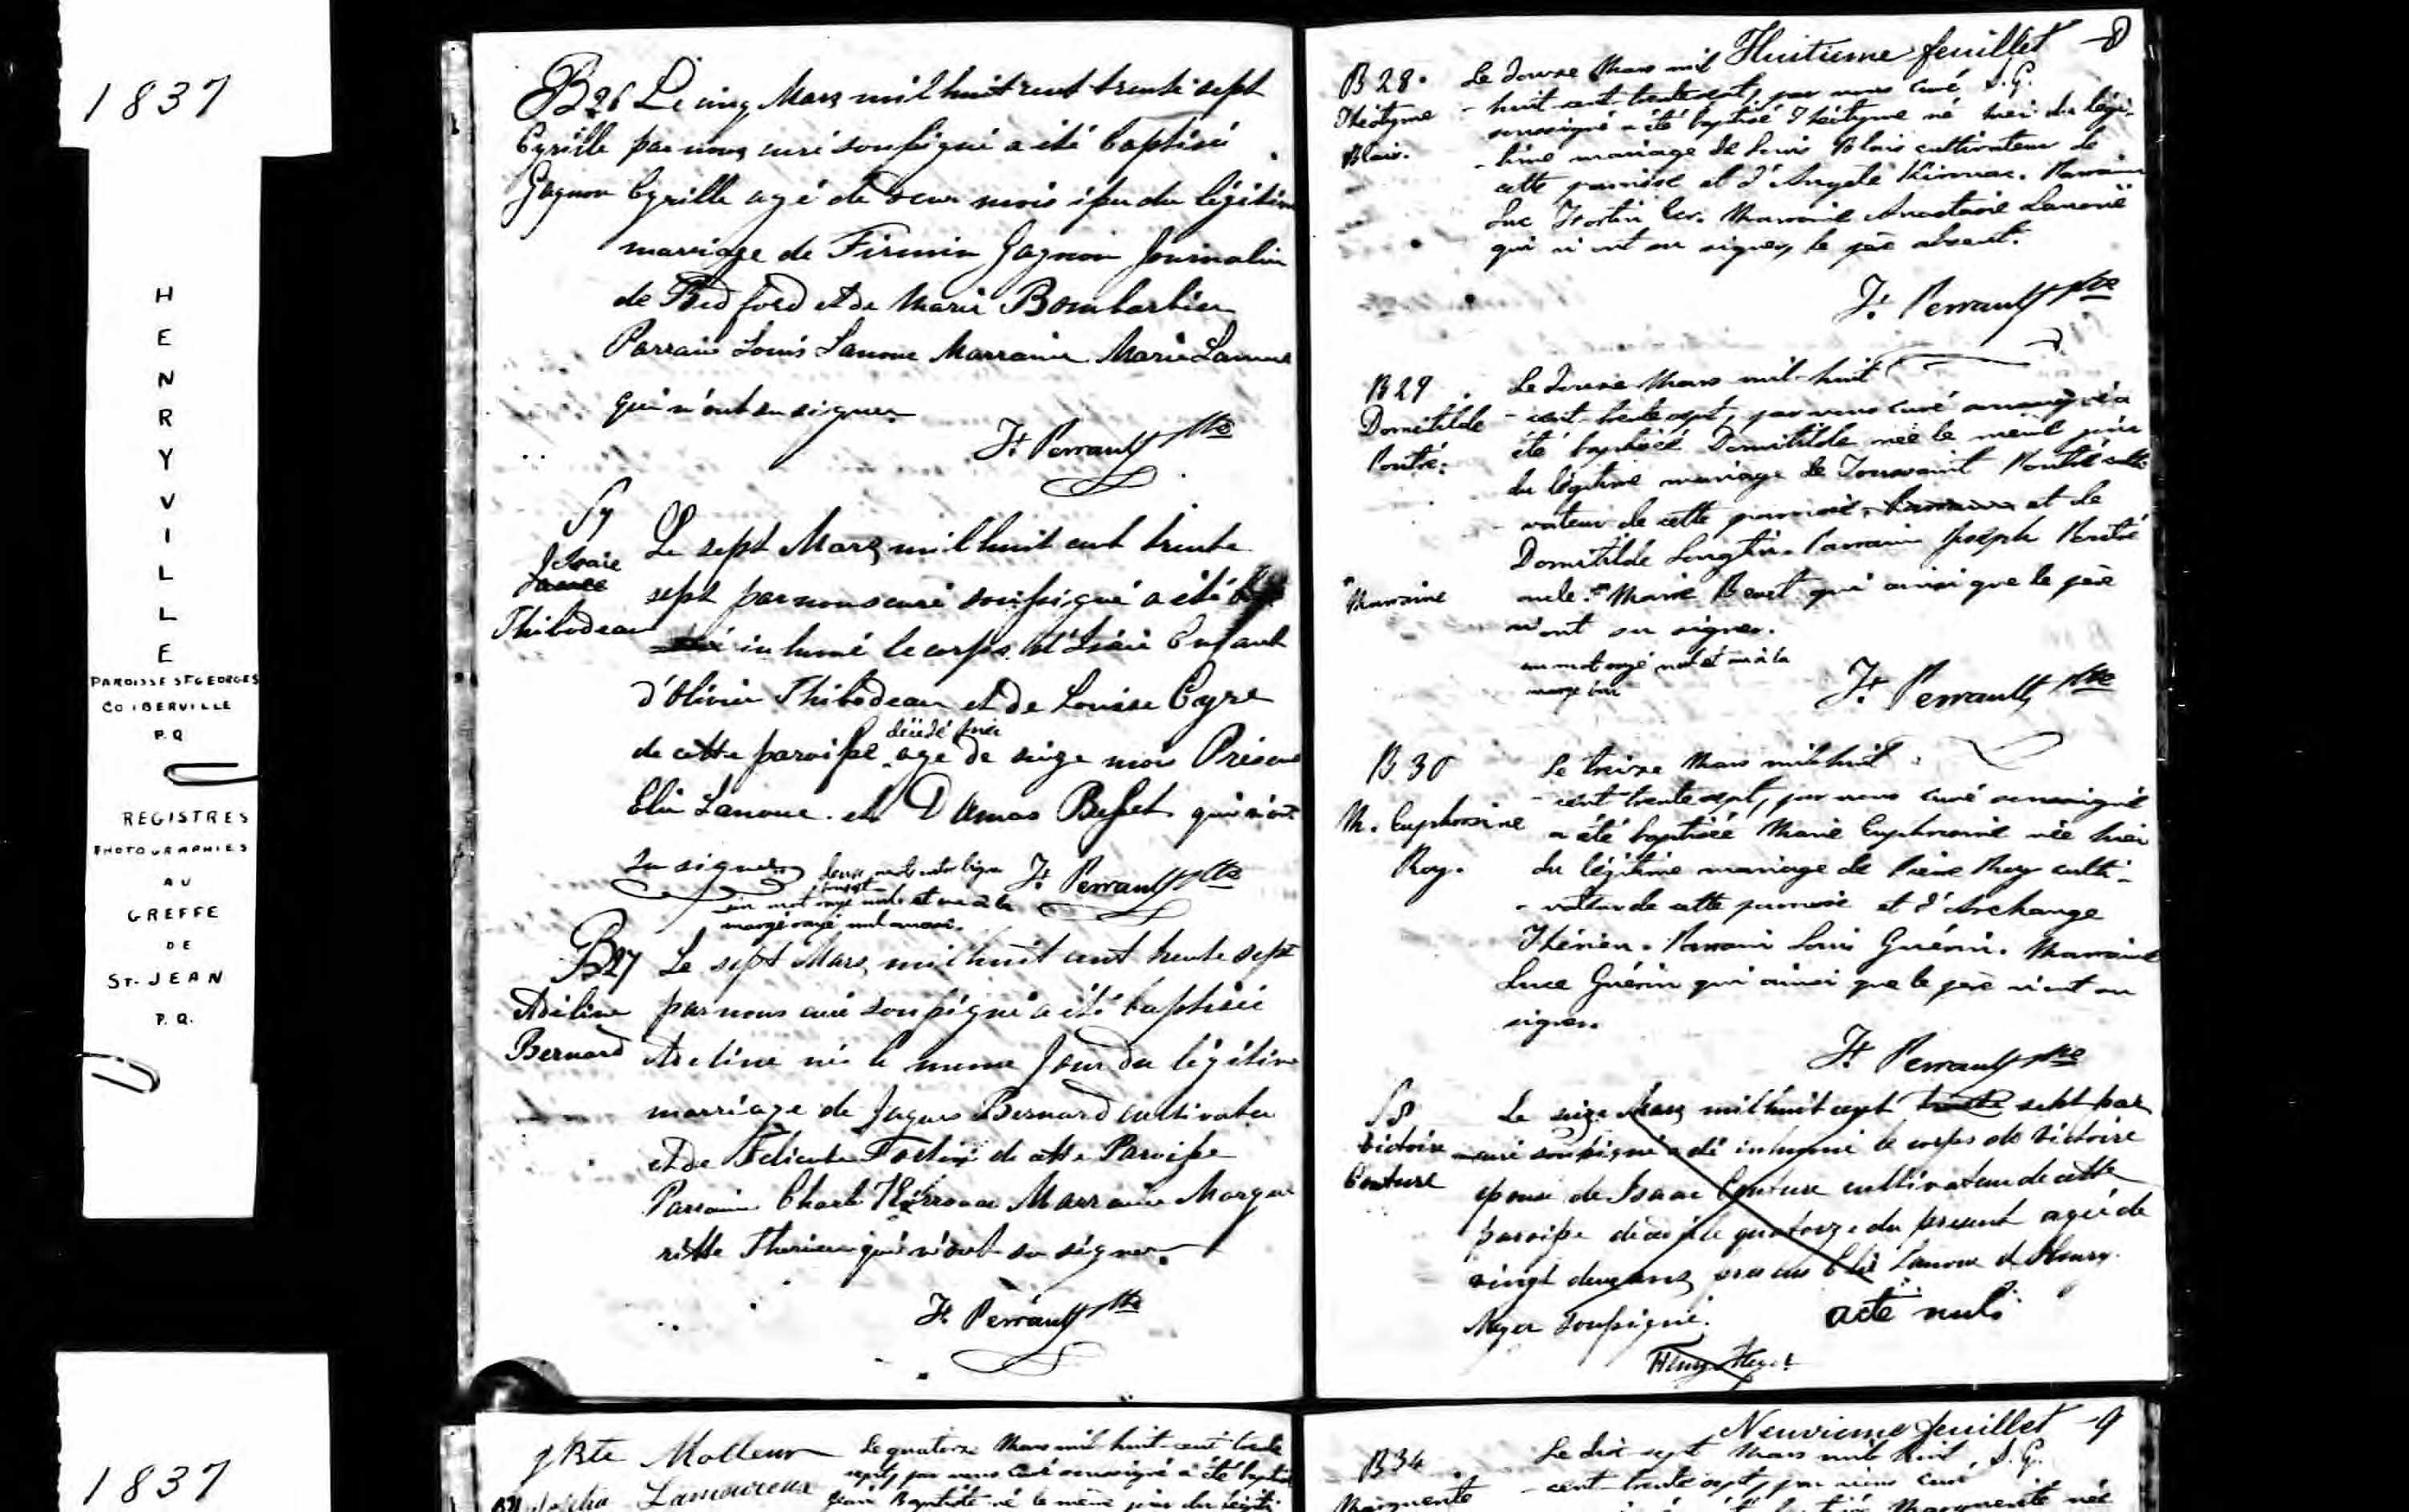 1837
HENRYVILLE
PAROISSE ST GEORGES
CO. IBERVILLE
P.Q
REGISTRES
PHOTOGRAPHIES
AU
GREFFE
DE
ST-JEAN
P.Q.
1837
B26 Le cinq Mars mil huit cent trente sept
Cyrille par nous curé soussigné a été baptisé
Gagnon Cyrille agé de deux mois issu du légitime
marriage de Firmin Gagnon Journalier
de Bedford et de Marie Bombardier
Parrain Louis Lanoue Marraine Marie Lanoue
qui n'ont su signer
Jh Perrault Ptre
S7 Le sept Mars mil huit cent trente
sept par nous curé soussigné a été
Thibodeau inhumé le corps d'Isaie Enfant
d'Olivier Thibodeau et de Louise Cyre
décédé hier
de cette paroisse agé de seize mois Présens
Elie Lanoue et Damas Besset qui n'ont
su signer deux mots entre ligne Jh Perrault Ptre
un mot rayé nul et un à la
marge rayé nul aussi.
B27 Le sept Mars mil huit cent trente sept
Adeline par nous curé soussigné a été baptisée
Bernard Adeline née le meme Jour du légitime
marriage de Jaques Bernard cultivateur
et de Felicité Fortin de cette Paroisse
Parrain Charle Marraine Margue
ritte Therien qui n'ont su signer.
Jh Perrault Ptre
Huitieme feuillet - 8
B28. Le douze Mars mil
Théotyme - huit-cent-trente-sept, par nous curé S.G.
soussigné a été baptisé Théotyme né hier du légi-
Blais. - time mariage de Louis Blais cultivateur de
cette paroisse et d'Angele Kirouac. Parrain
Luc Fortin Ecr. Marraine Anastasie Lanoue
qui n'ont su signer, le père absent.
Jh. Perrault Ptre
B29 Le douze Mars mil-huit
Domitilde - cent-trente-sept, par nous curé soussigné a
été baptisée Domitilde née le même jour
Pontré. du légitime mariage de Toussaint Pontré culti
- vateur de cette paroisse, et de
Domitilde Longtin. Parrain Joseph Pontré
Marraine oncle. Marie Benoit qui ainsi que le père
n'ont su signer.
un mot rayé nul et un à la
marge bon
Jh. Perrault, Ptre
B30 Le treize Mars mil huit
- cent trente sept, par nous curé soussigné
M. Euphrosine a été baptisée Marie Euphrosine née hier
Roy. du légitime mariage de Pierre Roy culti-
- vateur de cette paroisse et d'Archange
Thérien. Parrain Louis Guérin. Marraine
Luce Guérin qui ainsi que le père n'ont su
signer.
Jh Perrault Ptre
S8 Le seize Mars mil huit cent trente sept par
Victoire curé soussigné a été inhumé le corps de Victoire
Couture epouse de Isaac Couture cultivateur de cette
paroisse décédé le quatorze du present agée de
vingt deux ans presens Elie Lanoue et Henry
soussigné. acte nul.
Neuvieme feuillet - 9
Jn Bte Molleur Le quatorze Mars mil-huit-cent-trente
sept, par nous curé soussigné a été baptisé
Lamoureux Jean Baptiste né le même jour du légiti
B34 Le dix-sept Mars mil huit S.G.
- cent-trente-sept, par nous curé
Marguerite